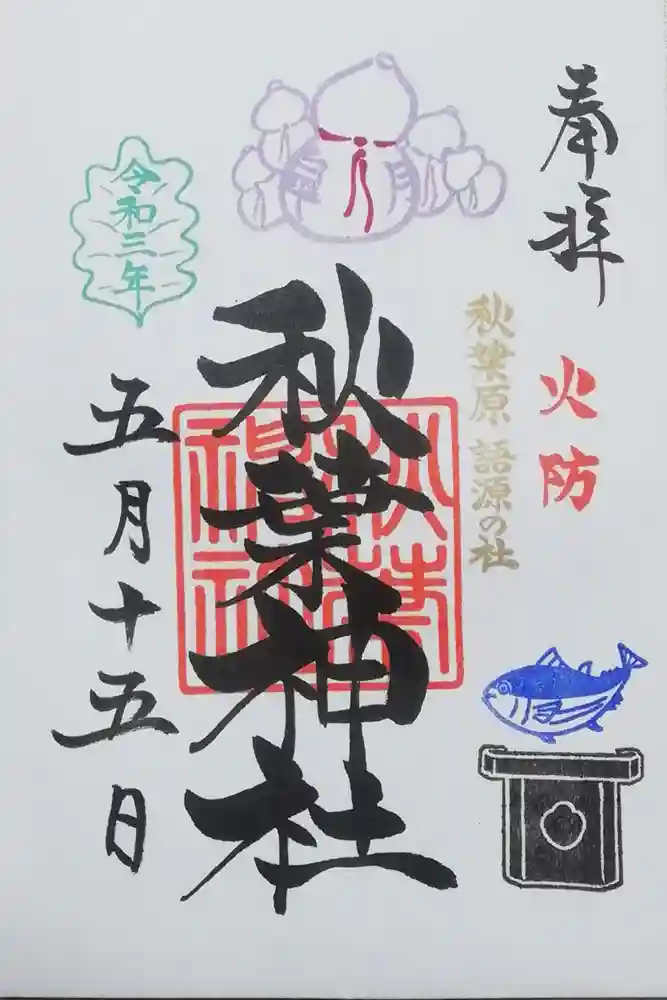 奉拝
火防
秋葉原 語源の社
皐月
秋葉神社
秋葉
神社
令和三年
五月十五日